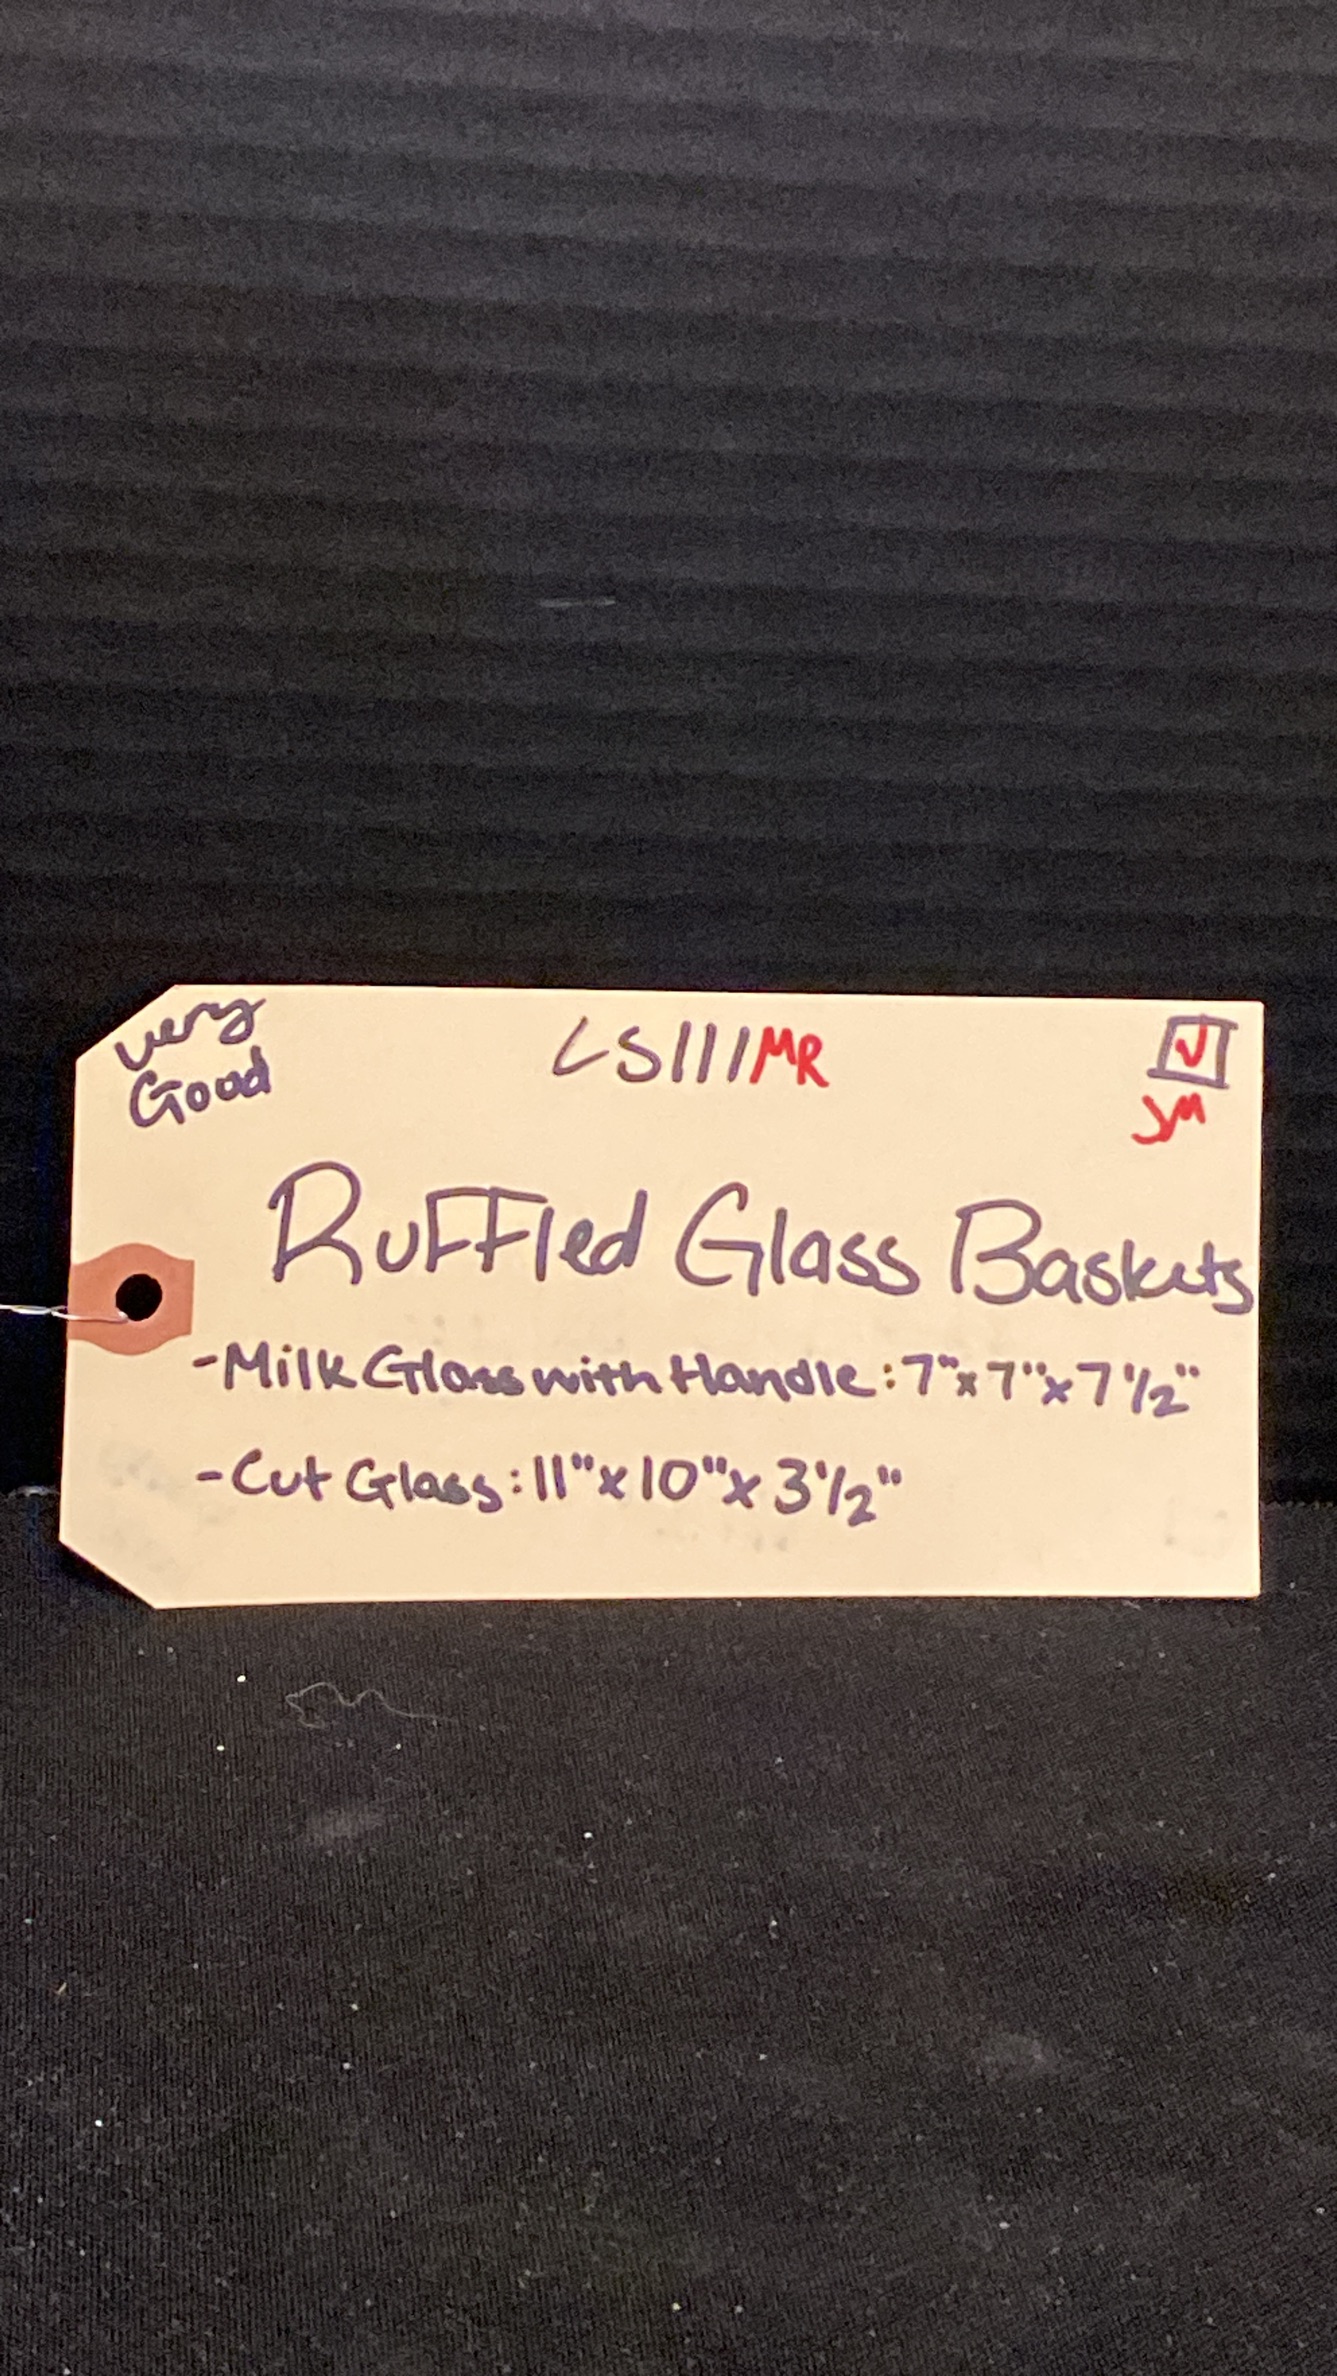 Very
Good
LS111MR
JM
Ruffled Glass Baskets
-Milk Glass with Handle: 7"x7"x7 1/2"
-Cut Glass: 11"x10"x 3 1/2"